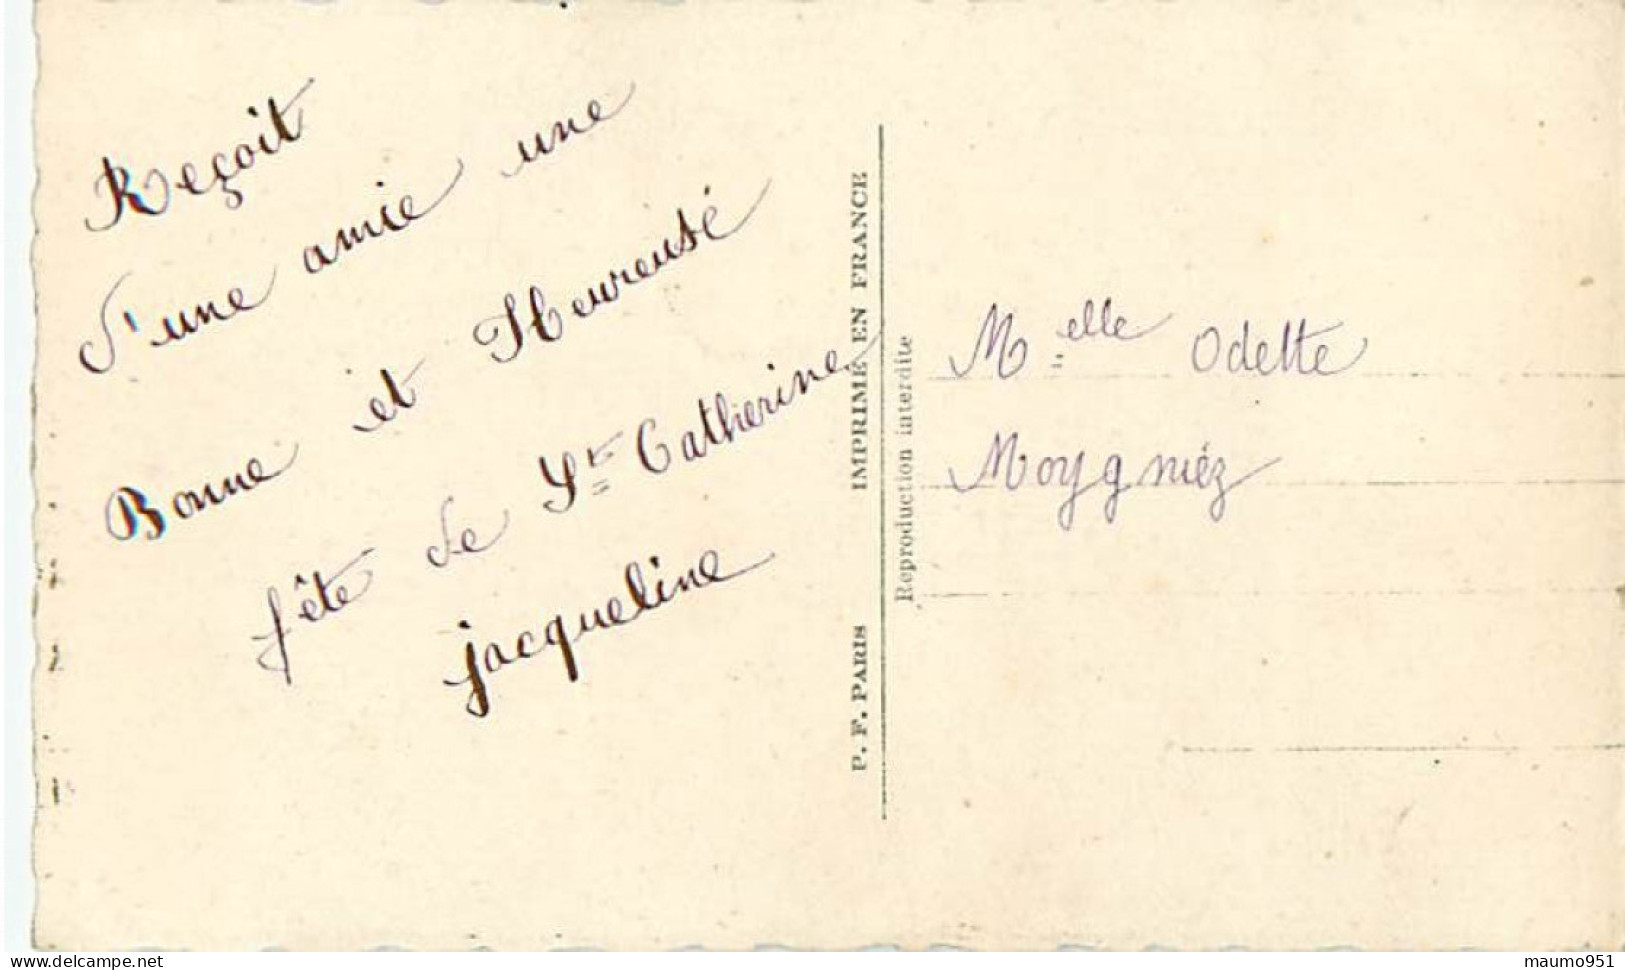 Reçoit
d'une amie une
Bonne et Heureuse
fête de Ste Catherine
jacqueline
P. F. PARIS IMPRIMÉ EN FRANCE
Reproduction interdite
Melle Odette
Moygniéz
maumo951